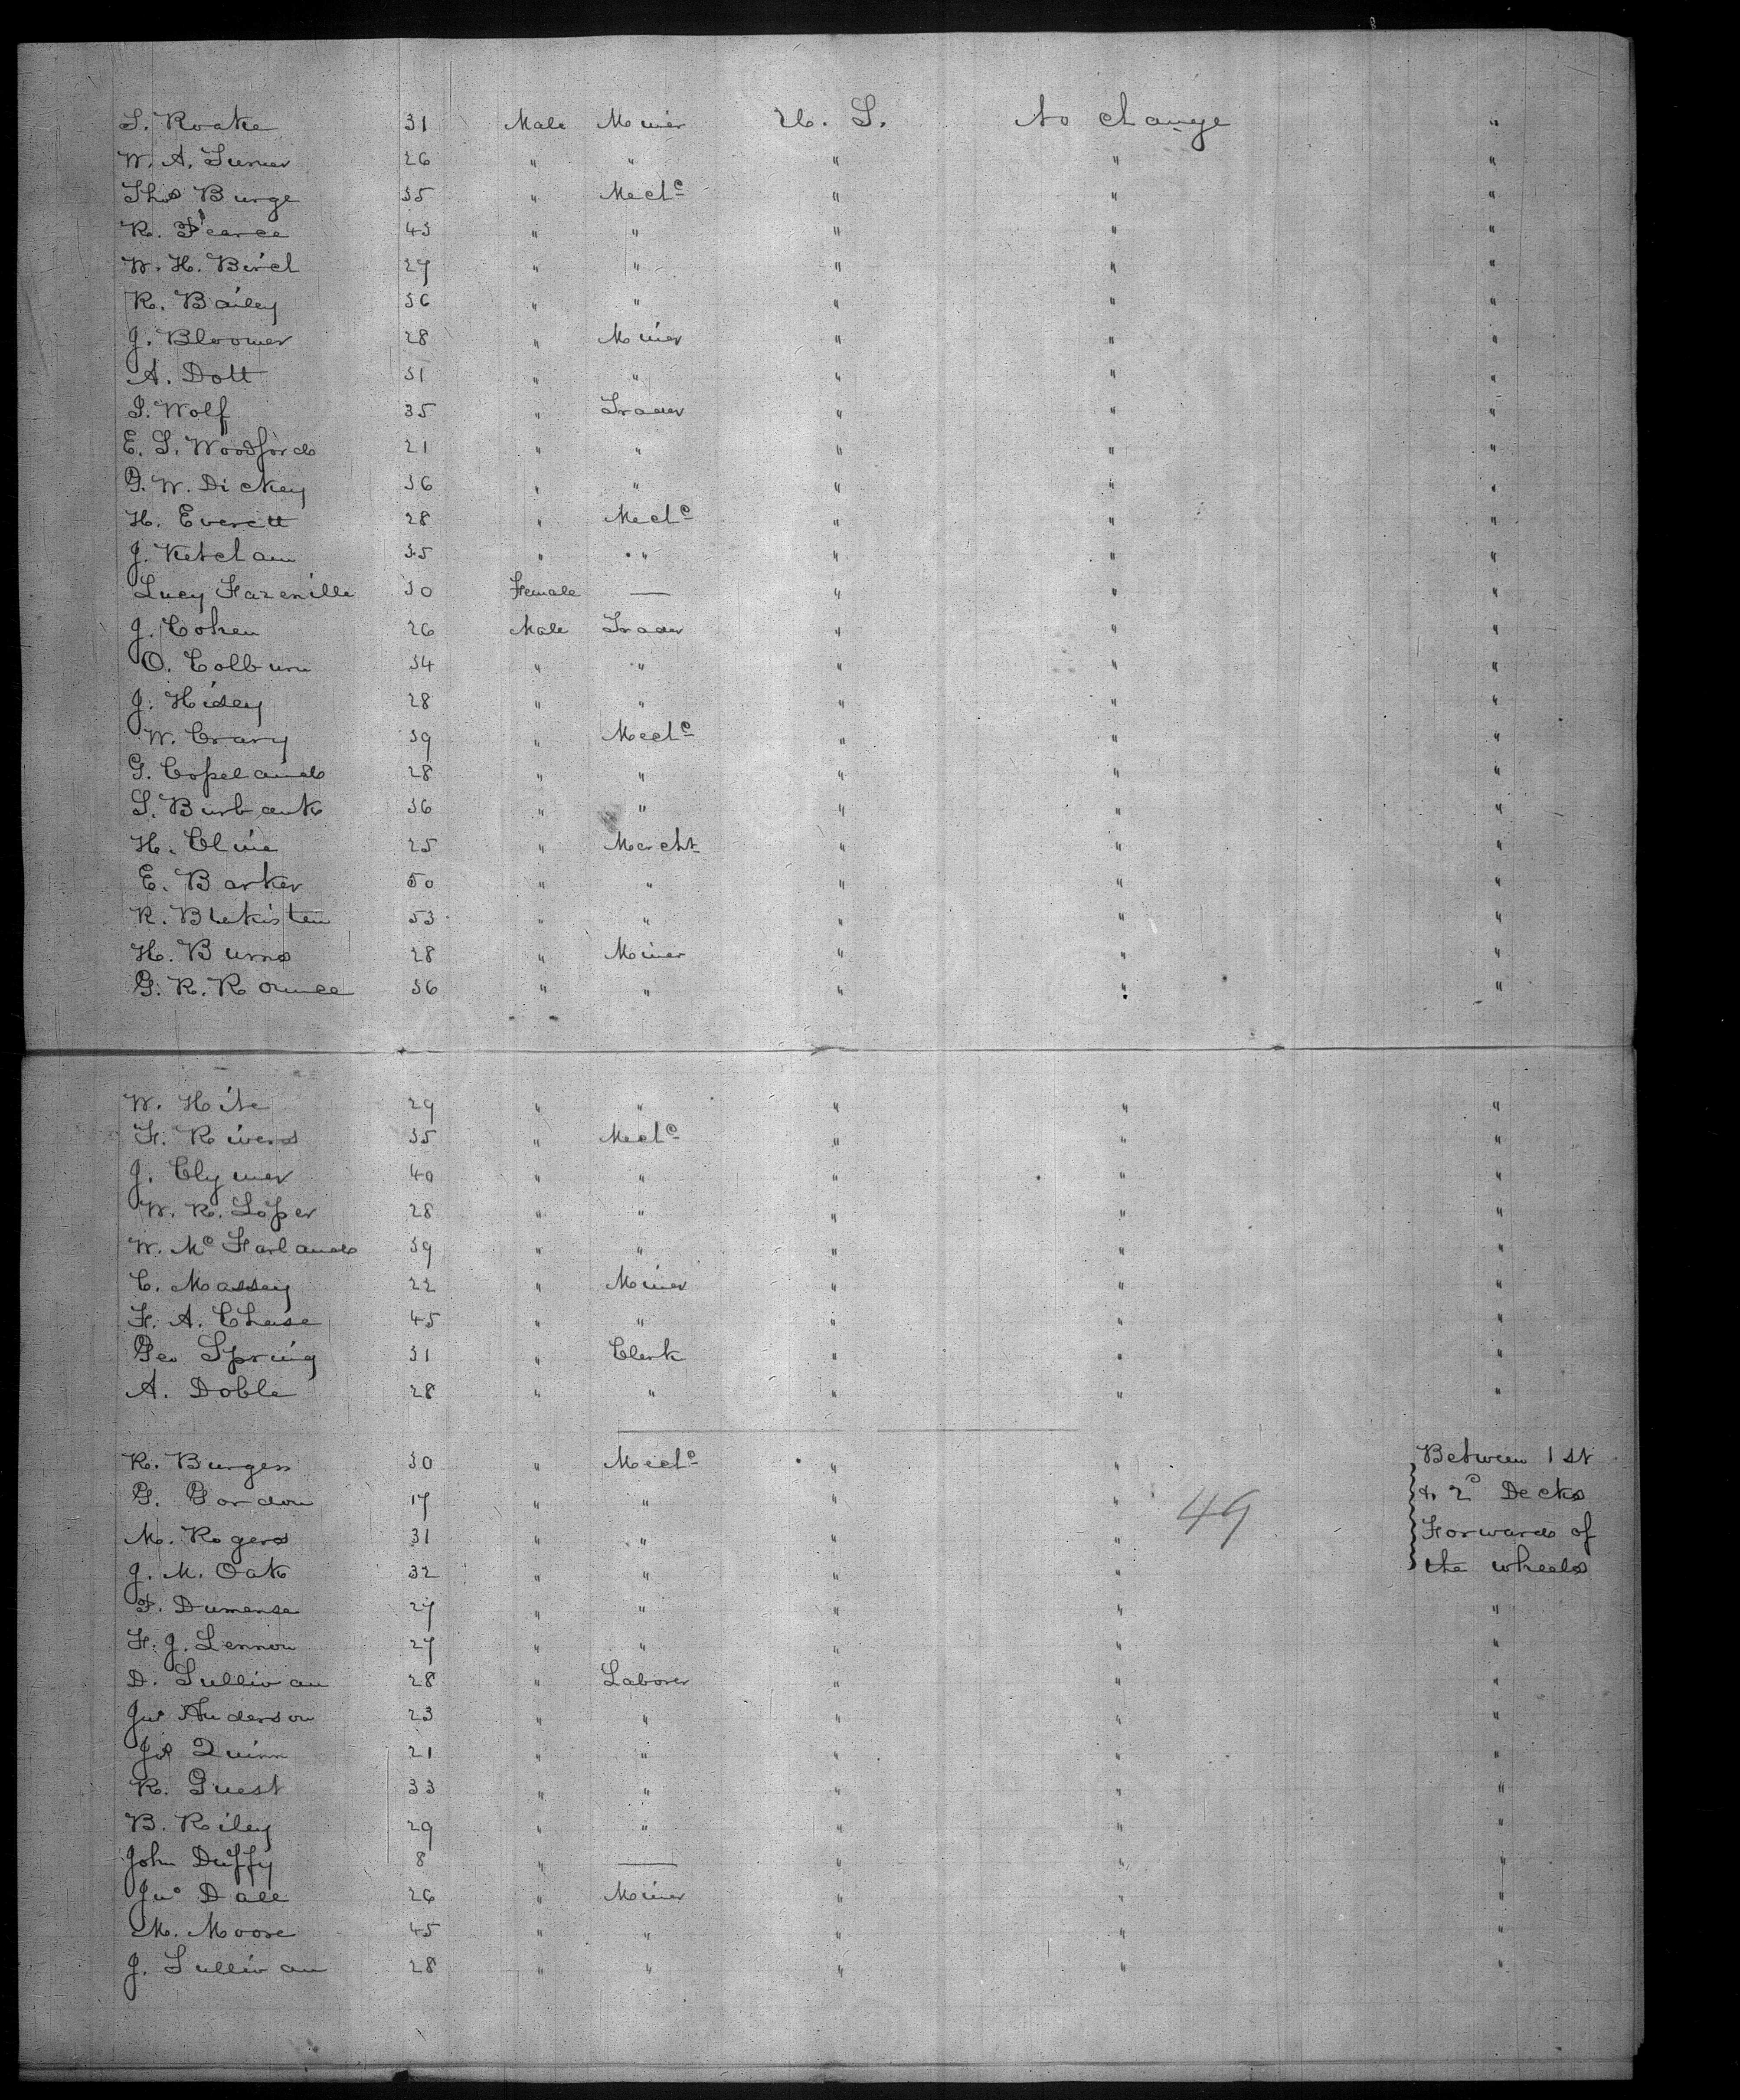 S. Roake 31 Male Miner U. S. No change "
W. A. Turner 26 " " " " "
Thos Burge 35 " Mechc " " "
R. Pearce 43 " " " " "
W. H. Birch 27 " " " " "
R. Bailey 36 " " " " "
J. Bloomer 28 " Miner " " "
A. Dott 31 " " " " "
S. Wolf 35 " Trader " " "
E. S. Woodford 21 " " " " "
G. W. Dickey 36 " " " " "
H. Everett 28 " Mechc " " "
J. Ketcham 35 " " " " "
Lucy Hazenille 30 Female — " " "
J. Cohen 26 Male Trader " " "
O. Colburn 34 " " " " "
J. Hidey 28 " " " " "
W. Crary 39 " Mechc " " "
G. Copeland 28 " " " " "
S. Burbank 36 " " " " "
H. Cline 25 " Mercht " " "
E. Barker 50 " " " " "
R. 53 " " " " "
H. Burns 28 " Miner " " "
G. R. Rounce 36 " " " " "
W. Hite 29 " " " " "
F. Rivers 35 " Mechc " " "
J. Clymer 40 " " " " "
W. R. Loper 28 " " " " "
W. McFarland 39 " " " " "
C. Massey 22 " Miner " " "
F. A. Chase 45 " " " " "
Geo Spring 31 " Clerk " " "
A. Doble 28 " " " " "
R. Burgess 30 " Mechc " " Between 1st
G. Gordon 17 " " " " 49 & 2d Decks
M. Rogers 31 " " " " Forward of
J. M. Oak 32 " " " " the wheels
F. Dumense 27 " " " " "
F. J. Lennon 27 " " " " "
D. Sullivan 28 " Laborer " " "
Jno Anderson 23 " " " " "
Jas Quinn 21 " " " " "
R. Guest 33 " " " " "
B. Riley 29 " " " " "
John Duffy 8 " — " " "
Jno Dall 26 " Miner " " "
M. Moore 45 " " " " "
J. Sullivan 28 " " " " "